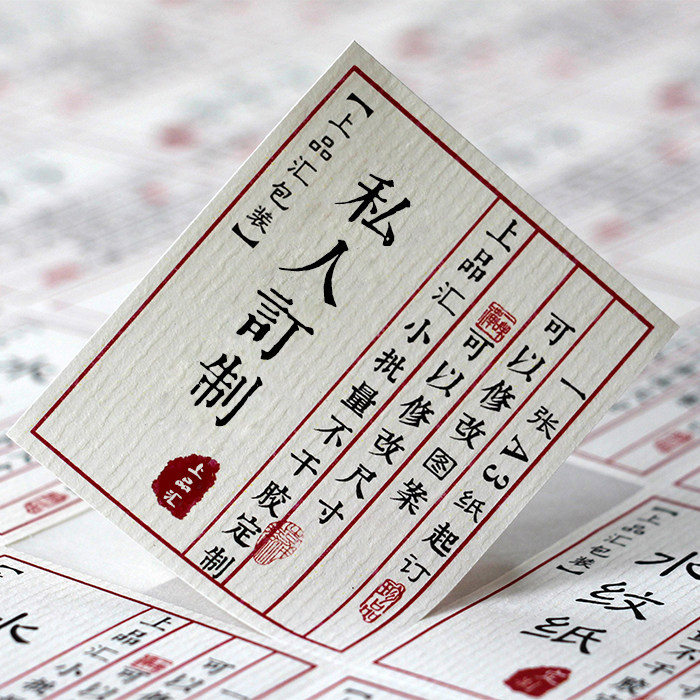 【上品汇包装】
私人訂制
上品汇
上品汇小批量不干胶定制
可以修改尺寸
可以修改图案
一张A3纸起订
【上品汇包装】
水纹纸
水
上品汇小批
可以
可